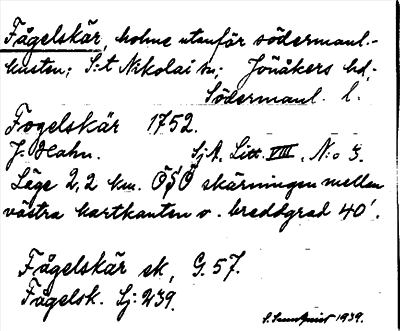 Fågelskär, holme utanför södermanl.-
kusten; S:t Nikolai sn; Jönåkers hd,
Södermanl. l.
Fogelskär 1752.
J. Hahn. SjA. Litt. VIII, N:o 3.
Läge 2,2 km. ÖSÖ skärningen mellan
västra kartkanten o. breddgrad 40'.
Fågelskär ek, G. 57.
Fågelsk. Sj: 239.
S. Sundqvist 1939.